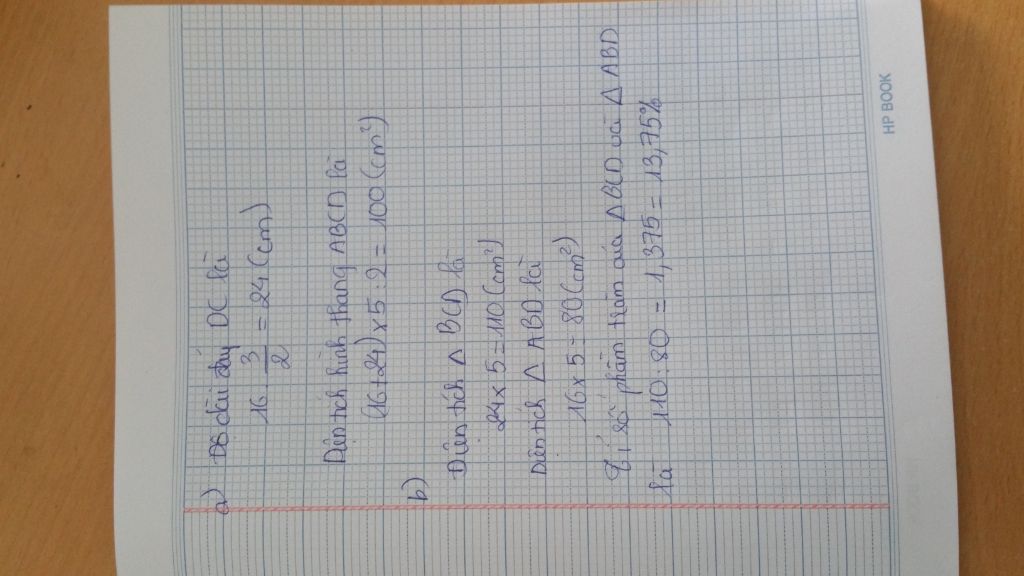 a) Độ dài đáy DC là
16 . 3/2 = 24 (cm)
Diện tích hình thang ABCD là
(16+24) x 5 : 2 = 100 (cm²)
b)
Diện tích Δ BCD là
24 x 5 = 110 (cm²)
Diện tích Δ ABD là
16 x 5 = 80 (cm²)
Tỉ số phần trăm của Δ BCD và Δ ABD
là 110 : 80 = 1,375 = 13,75%
HP BOOK